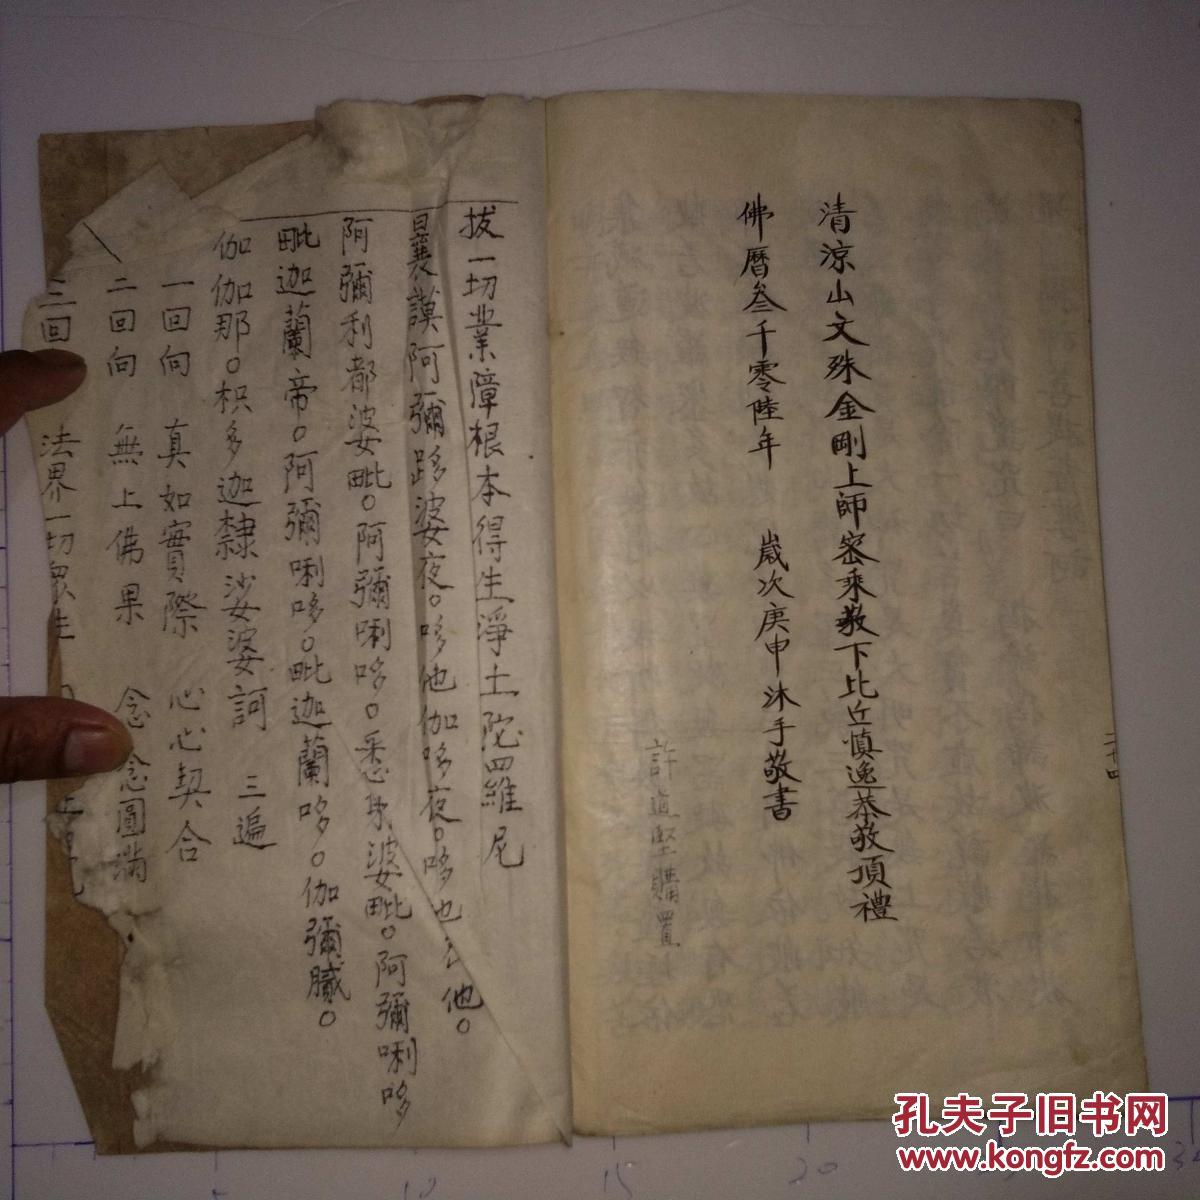 清涼山文殊金剛上師密乘教下比丘慎逸恭敬頂禮
佛曆叁千零陸年 歲次庚申沐手敬書
許道堅購置
二十四
拔一切業障根本得生淨土陀羅尼
曩謨阿彌哆婆夜。哆他伽哆夜。哆地夜他。
阿彌利都婆毗。阿彌唎哆。悉耽婆毗。阿彌唎哆
毗迦蘭帝。阿彌唎哆。毗迦蘭哆。伽彌膩。
伽伽那。枳多迦隸娑婆訶 三遍
一回向 真如實際 心心契合
二回向 無上佛果 念念圓滿
三回 法界一切眾生
孔夫子旧书网
www.kongfz.com
10
15
20